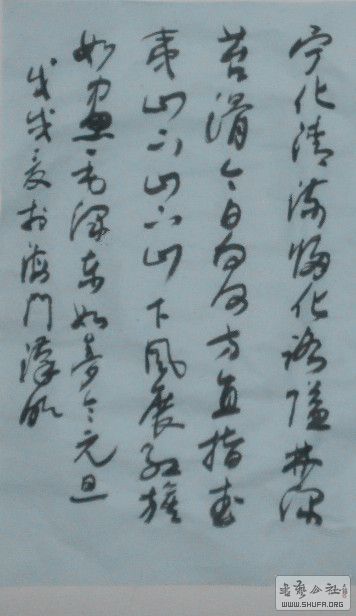 宁化清流归化路隘林深
苔滑今日向何方直指武
夷山下山下山下風展红旗
如畫毛泽东如梦令元旦
戊戌夏於海門
书艺公社
WWW.SHUFA.ORG